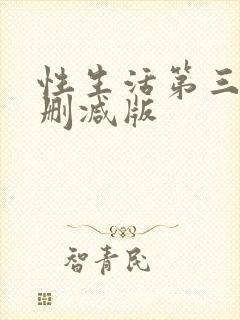 性生活第三
删减版
智青民